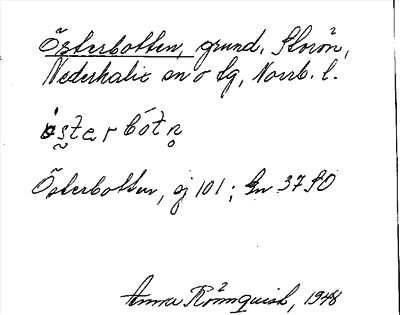 Österbotten, grund, Storön,
Nederkalix sn o tg, Norrb. l.
österbótn̥
Österbotten, ej 101; Gn 37 SO
Anna Rönnquist, 1948